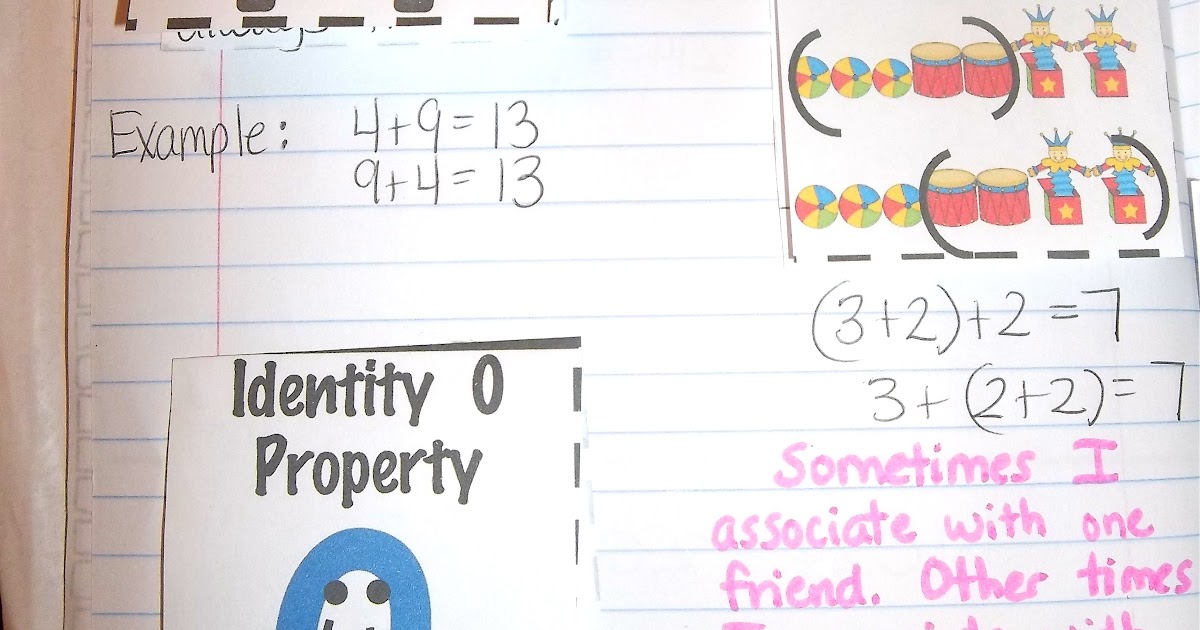 always
Example: 4+9=13
9+4=13
(3+2)+2=7
3+(2+2)=7
Identity 0
Property
Sometimes I
associate with one
friend. Other times